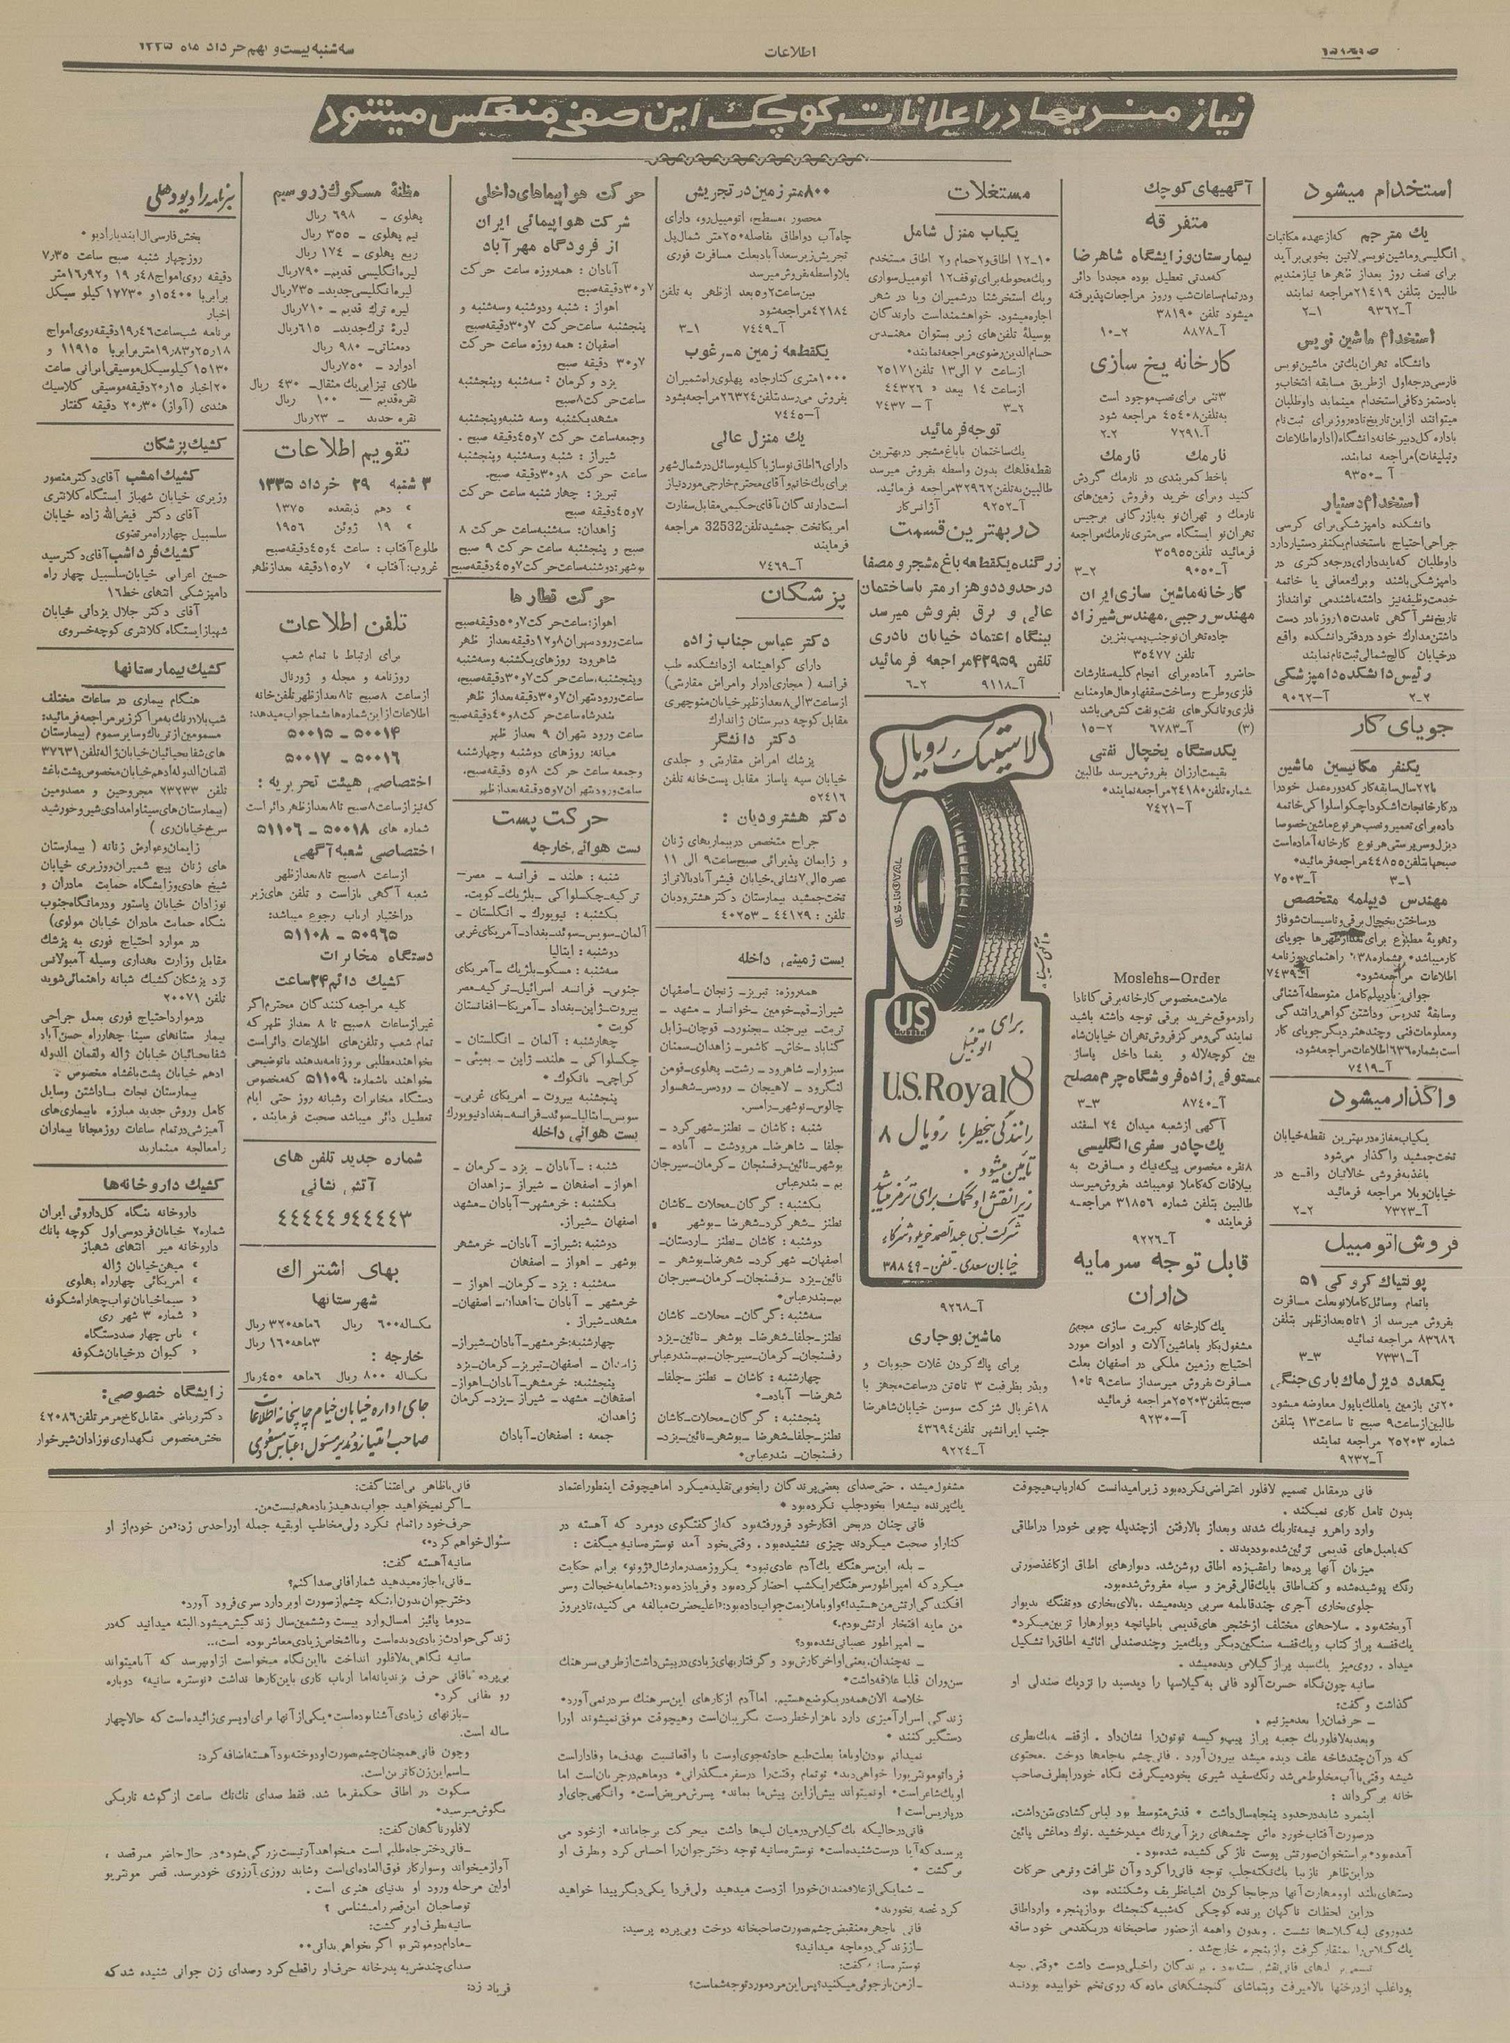 سه شنبه بیست و نهم خرداد ماه ۱۳۳۵
اطلاعات
نیازمندیها در اعلانات کوچک این صفحه منعکس میشود
استخدام میشود
یک مترجم که از عهده مکاتبات
انگلیسی و ماشین نویسی لاتین بخوبی برآید
برای نصف روز بعداز ظهرها نیازمندیم
طالبین بتلفن ۲۱۴۱۹ مراجعه نمایند
آ_۹۳۶۲ ۱_۲
استخدام ماشین نویس
دانشگاه تهران یک تن ماشین نویس
فارسی درجه اول از طریق مسابقه انتخاب و
با دستمزد کافی استخدام مینماید داوطلبان
میتوانند از این تاریخ تا ده روز برای ثبت نام
باداره کل دبیرخانه دانشگاه (اداره اطلاعات
و تبلیغات) مراجعه نمایند.
آ_۹۳۵۰
استخدام دستیار
دانشکده دامپزشکی برای کرسی
جراحی احتیاج باستخدام یکنفر دستیار دارد
داوطلبان که باید دارای درجه دکتری در
دامپزشکی باشند و برگ معافی یا خاتمه
خدمت وظیفه نیز داشته باشند می توانند از
تاریخ نشر آگهی تا مدت ۱۵ روز با در دست
داشتن مدارک خود در دفتر دانشکده واقع
در خیابان کالج شمالی ثبت نام نمایند
رئیس دانشکده دامپزشکی
۲_۲ آ_۹۰۶۲
جویای کار
یکنفر مکانیسین ماشین
با ۲۲ سال سابقه کار که دوره عمل خود را
در کارخانجات اشکودا چکواسلواکی خاتمه
داده برای تعمیر و نصب هر نوع ماشین خصوصا
دیزل و سرپرستی هر نوع کارخانه آماده است
صبحها بتلفن ۴۴۸۵۵ مراجعه فرمائید
۱_۳ آ_۷۵۰۳
مهندس دیپلمه متخصص
در ساختن یخچال برقی و تاسیسات شوفاژ
و تهویه مطبوع برای بعدازظهرها جویای
اطلاعات مراجعه شود
آ_۷۴۳۹
جوانی با دیپلم کامل متوسطه آشنائی
وسابقهٔ تدریس و داشتن گواهی رانندگی
ومعلومات فنی و چند هنر دیگر جویای کار
است بشماره ۶۳۶ اطلاعات مراجعه شود.
آ_۷۴۱۹
واگذار میشود
یکباب مغازه در بهترین نقطه خیابان
تخت جمشید واگذار می شود
باغذیه فروشی خالاتیان واقع در
خیابان ویلا مراجعه فرمائید
آ_۷۳۲۳ ۲_۲
فروش اتومبیل
پونتیاک کروکی ۵۱
باتمام وسائل کاملا نو بعلت مسافرت
بفروش میرسد از ۱ تا ۵ بعدازظهر بتلفن
۸۳۶۸۶ مراجعه نمائید
آ_۷۳۳۱ ۳_۳
یکعدد دیزل ماک باری جنگی
۲۰ تن با زمین یا ملک یا پول معاوضه میشود
طالبین از ساعت ۹ صبح تا ساعت ۱۳ بتلفن
شماره ۲۵۲۰۳ مراجعه نمایند
آ_۹۲۳۲
آگهیهای کوچک
متفرقه
بیمارستان و زایشگاه شاهرضا
که مدتی تعطیل بوده مجددا دائر
ودر تمام ساعات شب و روز مراجعات پذیرفته
میشود تلفن ۳۸۱۹۰
آ_۸۸۷۸ ۲_۱۰
کارخانه یخ سازی
۳ تنی برای نصب موجود است
به تلفن ۴۵۴۰۸ مراجعه شود
آ_۷۲۹۱ ۲_۲
نارمک نارمک
باخط کمربندی در نارمک گردش
کنید و برای خرید و فروش زمین های
نارمک و تهران نو به بازرگانی برجیس
تهران نو ایستگاه سی متری نارمک مراجعه
فرمائید تلفن ۳۵۹۵۵
آ_۹۰۵۰ ۲_۳
کارخانه ماشین سازی ایران
مهندس رجبی، مهندس شیرزاد
جاده تهران نو جنب پمپ بنزین
تلفن ۳۵۴۷۷
حاضر و آماده برای انجام کلیه سفارشات
فلزی و طرح وساخت سقفها و هال ها و منابع
فلزی و تانکرهای نفت و نفت کش می باشد
(۳) آ_۶۷۸۳ ۲_۱۵
یکدستگاه یخچال نفتی
بقیمت ارزان بفروش میرسد طالبین
شماره تلفن ۲۴۱۸۰ مراجعه نمایند
آ_۷۴۲۱
Moslehs—Order
علامت مخصوص کارخانه برقی کانادا
را در موقع خرید برقی توجه داشته باشید
نمایندگی ومرکز فروش تهران خیابان شاه
بین کوچه لاله و یغما داخل پاساژ
مستوفی زاده فروشگاه چرم مصلح
آ_۸۷۴۰ ۳_۳
آگهی از شعبه میدان ۲۴ اسفند
یک چادر سفری انگلیسی
۸ نفره مخصوص پیک نیک و مسافرت به
ییلاقات که کاملا نو میباشد بفروش میرسد
طالبین بتلفن شماره ۳۱۸۵۶ مراجعه
فرمایند
آ_۹۲۲۶
قابل توجه سرمایه
داران
یک کارخانه کبریت سازی مجهز
مشغول بکار با ماشین آلات و ادوات مورد
احتیاج وزمین ملکی در اصفهان بعلت
مسافرت بفروش میرسد از ساعت ۹ تا ۱۰
صبح بتلفن ۲۵۲۰۳ مراجعه فرمائید
آ_۹۲۳۰
مستغلات
یکباب منزل شامل
۱۰_۱۲ اطاق و ۲ حمام و ۲ اطاق مستخدم
و یک محوطه برای توقف ۱۲ اتومبیل سواری
ویک استخر شنا در شمیران ویا در شهر
اجاره میشود. خواهشمند است دارندگان
بوسیله تلفن های زیر بستوان مهندس
حسام الدین رضوی مراجعه نمایند
از ساعت ۷ الی ۱۳ تلفن ۲۵۱۷۱
از ساعت ۱۴ ببعد » ۴۴۳۲۶
۲_۳ آ_۷۴۳۷
توجه فرمائید
یک ساختمان باباغ مشجر در بهترین
نقطه قلهک بدون واسطه بفروش میرسد
طالبین به تلفن ۳۲۹۶۲ مراجعه فرمائید.
آ_۹۲۵۲ آژانس کار
در بهترین قسمت
زرگنده یکقطعه باغ مشجر و مصفا
در حدود دوهزار متر باساختمان
عالی و برق بفروش میرسد
بنگاه اعتماد خیابان نادری
تلفن ۴۲۹۵۹ مراجعه فرمائید
آ_۹۱۱۸ ۲_۶
لاستیک رویال
U.S. ROYAL
US
برای
اتومبیل
U.S.Royal8
رانندگی بیخطر با رویال ۸
تأمین میشود.
زیرا نقش او کمک برای ترمز میباشد
شرکت نسبی عبدالصمد خویلو و شرکاء
خیابان سعدی-تلفن-۳۸۸۴۹
آ_۹۲۶۸
ماشین بوجاری
برای پاک کردن غلات حبوبات و
وبذر بظرفیت ۳ تا ۵ تن در ساعت مجهز با
۱۸ غربال شرکت سوسن خیابان شاهرضا
جنب ایرانشهر تلفن ۴۳۶۹۴
آ_۹۲۲۴
۸۰۰ متر زمین در تجریش
محصور، مسطح، اتومبیل رو، دارای
چاه آب دو اطاق بفاصله ۲۵۰ متر شمال پل
تجریش زیر سعدآباد بعلت مسافرت فوری
بلاواسطه بفروش میرسد
بین ساعت ۲ و ۵ بعد از ظهر به تلفن
۴۲۱۸۴ مراجعه شود
آ_۷۴۴۹ ۱_۳
یکقطعه زمین مرغوب
۱۰۰۰ متری کنار جاده پهلوی راه شمیران
بفروش میرسد تلفن ۲۶۳۲۴ مراجعه بشود
آ_۷۴۴۵
یک منزل عالی
دارای ۶ اطاق نوساز با کلیه وسائل در شمال شهر
برای یک خانم و آقای محترم خارجی مورد نیاز
است دارندگان با آقای حکیمی مقابل سفارت
امریکا تخت جمشید تلفن 32532 مراجعه
فرمایند
آ_۷۴۶۹
پزشکان
دکتر عباس جناب زاده
دارای گواهینامه از دانشکده طب
فرانسه (مجاری ادرار و امراض مقاربتی)
از ساعت ۳ الی ۸ بعدازظهر خیابان منوچهری
مقابل کوچه دبیرستان ژاندارک
دکتر دانشگر
پزشک امراض مقاربتی و جلدی
خیابان سپه پاساژ مقابل پست خانه تلفن
۵۲۴۱۶
دکتر هشترودیان :
جراح متخصص در بیماریهای زنان
و زایمان پذیرائی صبح ساعت ۹ الی ۱۱
عصر ۵ الی ۷ نشانی، خیابان فیشرآباد بالاتر از
تخت جمشید بیمارستان دکتر هشترودیان
تلفن : ۴۴۱۲۹ - ۴۰۲۵۳
پست زمینی داخله
همه روزه: تبریز_ زنجان _اصفهان
شیراز_قم_خومین _خوانسار _ مشهد_
تربت_ بیرجند _ بجنورد_ قوچان_زابل
گناباد _خاش_ کاشمر_ زاهدان_سمنان
سبزوار_ شاهرود_ رشت_ پهلوی_فومن
لنگرود _ لاهیجان _ رودسر_شهسوار
چالوس_نوشهر_رامسر.
شنبه: کاشان _ نطنز_شهرکرد _
جلفا _ شاهرضا_ مرودشت _ آباده _
بوشهر_نائین_رفسنجان _کرمان_سیرجان
بم _ بندرعباس
یکشنبه: گرگان_محلات_کاشان
نطنز _شهرکرد_شهرضا _بوشهر
دوشنبه: کاشان _نطنز _اردستان_
اصفهان _شهرکرد_ شهرضا_بوشهر _
نائین_یزد _رفسنجان_ کرمان_سیرجان
بم_بندرعباس
سه شنبه: گرگان_ محلات_ کاشان
نطنز_جلفا_شهرضا_ بوشهر _نائین_یزد
رفسنجان_کرمان_سیرجان_بم_بندرعباس
چهارشنبه: کاشان _ نطنز _جلفا_
شهرضا_ آباده_
پنجشنبه: گرگان_محلات_کاشان
نطنز_جلفا_شهرضا _بوشهر _نائین_یزد_
رفسنجان_ بندرعباس
حرکت هواپیماهای داخلی
شرکت هواپیمائی ایران
از فرودگاه مهرآباد
آبادان: همه روزه ساعت حرکت
۷ و ۳۰ دقیقه صبح
اهواز: شنبه ودوشنبه وسه شنبه و
پنجشنبه ساعت حرکت ۷ و ۳۰ دقیقه صبح
اصفهان: همه روزه ساعت حرکت
۷ و ۳۰ دقیقه صبح
یزد و کرمان: سه شنبه و پنجشنبه
ساعت حرکت ۸ صبح
مشهد یکشنبه وسه شنبه و پنجشنبه
وجمعه ساعت حرکت ۷ و ۴۵ دقیقه صبح.
شیراز: شنبه وسه شنبه و پنجشنبه
ساعت حرکت ۸ و ۳۰ دقیقه صبح.
تبریز: چهارشنبه ساعت حرکت
۷ و ۴۵ دقیقه صبح
زاهدان: سه شنبه ساعت حرکت ۸
صبح و پنجشنبه ساعت حرکت ۹ صبح
بوشهر: دوشنبه ساعت حرکت ۷ و ۴۵ دقیقه صبح
حرکت قطارها
اهواز: ساعت حرکت ۷ و ۵۰ دقیقه صبح
ساعت ورود بتهران ۸ و ۱۲ دقیقه بعداز ظهر
شاهرود: روزهای یکشنبه وسه شنبه
وپنجشنبه، ساعت حرکت ۷ و ۳۰ دقیقه صبح،
ساعت ورود بتهران ۷ و ۳۰ دقیقه بعداز ظهر
بندرشاه ساعت حرکت ۸ و ۴۰ دقیقه صبح
ساعت ورود بتهران ۹ بعداز ظهر
میانه: روزهای دوشنبه وچهارشنبه
وجمعه ساعت حرکت ۸ و ۵ دقیقه صبح.
ساعت ورود بتهران ۷ و ۵ دقیقه بعداز ظهر
حرکت پست
پست هوائی خارجه
شنبه: هلند _ فرانسه _ مصر_
ترکیه_چکسلواکی _بلژیک_کویت.
یکشنبه: نیویورک _ انگلستان _
آلمان_سویس_سوئد_بغداد_آمریکای غربی
دوشنبه: ایتالیا
سه شنبه: مسکو_بلژیک _آمریکای
جنوبی_ فرانسه_ اسرائیل_ترکیه_مصر
بیروت_ژاپن_بغداد _آمریکا_افغانستان
کویت
چهارشنبه: آلمان _ انگلستان _
چکسلواکی _ هلند_ ژاپن _ بمبئی _
کراچی_ بانکوک
پنجشنبه بیروت _ امریکای غربی_
سویس_ایتالیا_سوئد_فرانسه_بغداد نیویورک
پست هوائی داخله
شنبه: _آبادان _ یزد _کرمان _
اهواز_ اصفهان _ شیراز _ زاهدان
یکشنبه: خرمشهر_آبادان_مشهد
اصفهان _شیراز_
دوشنبه: شیراز_ آبادان_خرمشهر
بوشهر _اهواز _اصفهان
سه شنبه: یزد _کرمان_اهواز _
خرمشهر _ آبادان _زاهدان _اصفهان_
مشهد_شیراز.
چهارشنبه: خرمشهر_آبادان_شیراز_
زاهدان _ اصفهان_تبریز_کرمان_یزد
پنجشنبه: خرمشهر_آبادان_اهواز_
اصفهان_ مشهد _ شیراز_یزد_کرمان
زاهدان.
جمعه: اصفهان_آبادان
مظنهٔ مسکوک زر و سیم
پهلوی _ ۶۹۸ ریال
نیم پهلوی _ ۳۵۵ ریال
ربع پهلوی _ ۱۷۴ ریال
لیره انگلیسی قدیم_ ۷۹۰ ریال
لیره انگلیسی جدید_ ۷۳۵ ریال
لیره ترک قدیم _ ۷۱۰ ریال
لیره ترک جدید_ ۶۱۵ ریال
ده مناتی_ ۹۸۰ ریال
ادوارد_ ۷۵۰ ریال
طلای تیزابی یک مثقال_ ۴۳۰ ریال
نقره قدیم_ ۱۰۰ ریال
نقره جدید _ ۲۳ ریال
تقویم اطلاعات
۳ شنبه ۲۹ خرداد ۱۳۳۵
» دهم ذیقعده ۱۳۷۵
» ۱۹ ژوئن ۱۹۵۶
طلوع آفتاب: ساعت ۴ و ۴۵ دقیقه صبح
غروب آفتاب » ۷ و ۱۵ دقیقه بعدازظهر
تلفن اطلاعات
برای ارتباط با تمام شعب
روزنامه و مجله و ژورنال
از ساعت ۸ صبح تا ۸ بعدازظهر تلفن خانه
اطلاعات از این شماره ها بشما جواب میدهد:
۵۰۰۱۴ _ ۵۰۰۱۵
۵۰۰۱۶ _ ۵۰۰۱۷
اختصاصی هیئت تحریریه:
که نیز از ساعت ۸ صبح تا ۸ بعدازظهر دائر است
شماره های ۵۰۰۱۸ _ ۵۱۱۰۶
اختصاصی شعبه آگهی
از ساعت ۸ صبح تا ۸ بعدازظهر
شعبه آگهی باز است و تلفن های زیر
در اختیار ارباب رجوع میباشد:
۵۰۹۶۵ _ ۵۱۱۰۸
دستگاه مخابرات
کشیک دائم ۲۴ ساعت
کلیه مراجعه کنندگان محترم اگر
غیر از ساعات ۸ صبح تا ۸ بعداز ظهر که
تمام شعب وتلفن های اطلاعات دائر است
بخواهند مطلبی بروزنامه بدهند یا توضیحی
بخواهند باشماره: ۵۱۱۰۹ که مخصوص
دستگاه مخابرات وشبانه روز حتی ایام
تعطیل دائر میباشد صحبت فرمایند.
شماره جدید تلفن های
آتش نشانی
۴۴۴۴۳ و ۴۴۴۴۴
بهای اشتراک
شهرستانها
یکساله ۶۰۰ ریال ۶ ماهه ۳۲۰ ریال
۳ ماهه ۱۶۰ ریال
خارجه:
یکساله ۸۰۰ ریال ۶ ماهه ۴۵۰ ریال
جای اداره خیابان خیام چاپخانه اطلاعات
صاحب امتیاز و مدیر مسئول: عباس مسعودی
برنامه رادیو دهلی
پخش فارسی آل ایندیا رادیو
روز چهارشنبه صبح ساعت ۷٫۳۵
دقیقه روی امواج ۱۹٫۴۸ و ۱۶٫۹۲ متر
برابر با ۱۵۴۰۰ و ۱۷۷۳۰ کیلوسیکل
اخبار
برنامه شب ساعت ۱۹٫۴۶ دقیقه روی امواج
۲۵٫۱۸ و ۱۹٫۸۳ متر برابر با ۱۱۹۱۵ و
۱۵۱۳۰ کیلوسیکل موسیقی ایرانی ساعت
۲۰ اخبار ۲۰٫۱۵ دقیقه موسیقی کلاسیک
هندی (آواز) ۲۰٫۳۰ دقیقه گفتار
کشیک پزشکان
کشیک امشب آقای دکتر منصور
وزیری خیابان شهباز ایستگاه کلانتری
آقای دکتر فیض الله زاده خیابان
سلسبیل چهارراه مرتضوی
کشیک فرداشب آقای دکتر سید
حسین اعرابی خیابان سلسبیل چهارراه
دامپزشکی انتهای خط ۱۶
آقای دکتر جلال یزدانی خیابان
شهباز ایستگاه کلانتری کوچه خسروی
کشیک بیمارستانها
هنگام بیماری در ساعات مختلف
شب بلادرنگ به مراکز زیر مراجعه فرمائید:
مسمومین از تریاک و سایر سموم (بیمارستان
های شفا یحیائیان خیابان ژاله تلفن ۳۷۶۳۱
لقمان الدوله ادهم خیابان مخصوص پشت باغشاه
تلفن ۲۳۲۳۳ مجروحین و مصدومین
(بیمارستان های سینا و امدادی شیر و خورشید
سرخ خیابان ری)
زایمان و عوارض زنانه (بیمارستان
های زنان پیچ شمیران و وزیری خیابان
شیخ هادی و زایشگاه حمایت مادران و
نوزادان خیابان پاستور و درمانگاه جنوب
بنگاه حمایت مادران خیابان مولوی)
در موارد احتیاج فوری به پزشک
مقابل وزارت بهداری وسیله آمبولانس
نزد پزشکان کشیک شبانه راهنمائی شوید
تلفن ۲۰۰۷۱
در موارد احتیاج فوری بعمل جراحی
بیمارستانهای سینا چهارراه حسن آباد
شفا یحیائیان خیابان ژاله ولقمان الدوله
ادهم خیابان پشت باغشاه مخصوص
بیمارستان نجات با داشتن وسایل
کامل و روش جدید مبارزه با بیماری های
آمیزشی در تمام ساعات روز مجانا بیماران
را معالجه مینماید
کشیک داروخانه ها
داروخانه بنگاه کل داروئی ایران
شماره ۲ خیابان فردوسی اول کوچه بانک
داروخانه میر انتهای شهباز
» میهن خیابان ژاله
» امریکائی چهارراه پهلوی
» سینا خیابان نواب چهارراه شکوفه
» شماره ۳ شهر ری
» یاس چهارصد دستگاه
» کیوان در خیابان شکوفه
زایشگاه خصوصی:
دکتر ریاضی مقابل کاخ مرمر تلفن ۴۲۰۸۶
بخش مخصوص نگهداری نوزادان شیرخوار
فانی در مقابل تصمیم لافلور اعتراضی نکرده بود زیرا میدانست که ارباب هیچوقت
بدون تامل کاری نمیکند.
وارد راهرو نیمه تاریک شدند وبعد از بالا رفتن از چند پله چوبی خود را در اطاقی
که با مبل های قدیمی تزئین شده بود دیدند.
میزبان آنها پرده ها را عقب زده اطاق روشن شد، دیوارهای اطاق از کاغذ صورتی
رنگ پوشیده شده و کف اطاق با یک قالی قرمز و سیاه مفروش شده بود.
جلوی بخاری آجری چند قابلمه سربی دیده میشد. بالای بخاری دو تفنگ بدیوار
آویخته بود. سلاح های مختلف از خنجر های قدیمی با طپانچه دیوارها را تزیین میکرد
یک قفسه پر از کتاب و یک قفسه سنگین دیگر و یک میز و چند صندلی اثاثیه اطاق را تشکیل
میداد. روی میز یک سبد پر از گیلاس دیده میشد.
سانیه چون نگاه حسرت آلود فانی به گیلاسها را دید سبد را نزدیک صندلی او
گذاشت و گفت:
_ حرفمان را بعد میزنیم.
وبعد به لافلور یک جعبه پر از پیپ و کیسه توتون را نشان داد. از قفسه یک بطری
که در آن چند شاخه علف دیده میشد بیرون آورد. فانی چشم به جام ها دوخت. محتوی
شیشه وقتی با آب مخلوط می شد رنگ سفید شیری بخود میگرفت نگاه خود را بطرف صاحب
خانه برگرداند:
اینمرد شاید در حدود پنجاه سال داشت قدش متوسط بود لباس گشادی تن داشت.
در صورت آفتاب خورده اش چشمهای ریز آبی رنگ میدرخشید. نوک دماغش پائین
آمده بود براستخوان صورتش پوست نازکی کشیده شده بود.
در این ظاهر نازیبا یک نکته جلب توجه فانی را کرد و آن ظرافت و نرمی حرکات
دستهای بلند او و مهارت آنها در جابجا کردن اشیاء ظریف و شکننده بود.
در این لحظات ناگهان پرنده کوچکی که شبیه گنجشک بود از پنجره وارد اطاق
شد و روی لبه گیلاسها نشست. و بدون واهمه از حضور صاحبخانه در یکقدمی خود ساقه
یک گیلاس را بمنقار گرفت و از پنجره خارج شد.
تبسمی بر لبهای فانی نقش بسته بود. پرندگان را خیلی دوست داشت وقتی بچه
بود اغلب از درختها بالا میرفت و بتماشای گنجشکهای ماده که روی تخم خوابیده بودند
مشغول میشد. حتی صدای بعضی پرندگان را بخوبی تقلید میکرد اما هیچوقت اینطور اعتماد
یک پرنده بیشه را بخود جلب نکرده بود
فانی چنان در بحر افکار خود فرو رفته بود که از گفتگوی دو مرد که آهسته در
کنار او صحبت میکردند چیزی نشنیده بود. وقتی بخود آمد نوستره سانیه میگفت:
_ بله، این سرهنگ یک آدم عادی نبود یکروز مصدر مارشال «ژونو» برایم حکایت
میکرد که امپراطور سرهنگ را یکشب احضار کرده بود و فریاد زده بود: «شما مایه خجالت و سر
افکندگی ارتش من هستید!» و او با ملایمت جواب داده بود: «اعلیحضرت مبالغه می کنید، تا دیروز
من مایه افتخار ارتش بودم.»
_ امپراطور عصبانی نشده بود؟
_ نه چندان، یعنی اواخر کارش بود و گرفتاریهای زیادی در پیش داشت از طرفی سرهنگ
سن وران قلبا علاقه داشت
خلاصه الان همه در یک وضع هستیم. اما آدم از کارهای این سرهنگ سر در نمی آورد
زندگی اسرار آمیزی دارد با هزار خطر دست بگریبان است و هیچوقت موفق نمیشوند او را
دستگیر کنند
نمیدانم بودن او با ما بعلت طبع حادثه جوی اوست یا واقعا نسبت بهدف ما وفادار است
فردا تو مونتریو را خواهی دید تو تمام وقتت را در سفر میگذرانی دو ما هم در جریان است اما
او یک شاعر است او نمیتواند بیش از این پیش ما بماند پسرش مریض است وانگهی جای او
در پاریس است!
فانی در حالیکه یک گیلاس در میان لب ها داشت بیحرکت بر جا ماند از خود می
پرسید که آیا درست شنیده است نوستره سانیه توجه دختر جوان را احساس کرد و بطرف او
برگشت
_ شما یکی از علاقمندان خود را از دست میدهید ولی فردا یکی دیگر پیدا خواهید
کرد غصه نخورید
فانی با چهره منقبض چشم بصورت صاحبخانه دوخت و بی پرده پرسید:
_از زندگی دو ما چه میدانید؟
نوستره سانیه گفت:
_ از من بازجوئی میکنید؟ پس این مرد مورد توجه شماست؟
فانی با ظاهر بی اعتنا گفت:
_اگر نمیخواهید جواب بدهید زیاد مهم نیست من.
حرف خود را تمام نکرد ولی مخاطب او بقیه جمله او را حدس زد: «من خودم از او
سئوال خواهم کرد»
سانیه آهسته گفت:
_فانی، اجازه میدهید شما را فانی صدا کنم؟
دختر جوان بدون اینکه چشم از صورت او بردارد سری فرود آورد
_دوما پائیز امسال وارد بیست و ششمین سال زندگیش میشود البته میدانید که در
زندگی حوادث زیادی دیده است و با اشخاص زیادی معاشر بوده است...
سانیه نگاهی به لافلور انداخت با این نگاه میخواست از او بپرسد که آیا میتواند
بی پرده با فانی حرف بزند یا نه اما ارباب کاری باین کارها نداشت «نوستره سانیه» دوباره
رو بفانی کرد
_با زنهای زیادی آشنا بوده است یکی از آنها برای او پسری زائیده است که حالا چهار
ساله است.
وچون فانی همچنان چشم بصورت او دوخته بود آهسته اضافه کرد:
_اسم این زن کاترین است.
سکوت در اطاق حکمفرما شد. فقط صدای تک تک ساعت از گوشه تاریکی
بگوش میرسید
لافلور ناگهان گفت:
_فانی دختر جاه طلبی است میخواهد آرتیست بزرگی بشود در حال حاضر میرقصد،
آواز میخواند و سوارکار فوق العاده ای است و شاید روزی آرزوی خود برسد. قصر مونتریو
اولین مرحله ورود او بدنیای هنری است.
تو صاحبان این قصر را میشناسی؟
سانیه بطرف او برگشت:
_مادام دو مونتریو اگر بخواهی بدانی
صدای چند ضربه بدر خانه حرف او را قطع کرد و صدای زن جوانی شنیده شد که
فریاد زد: